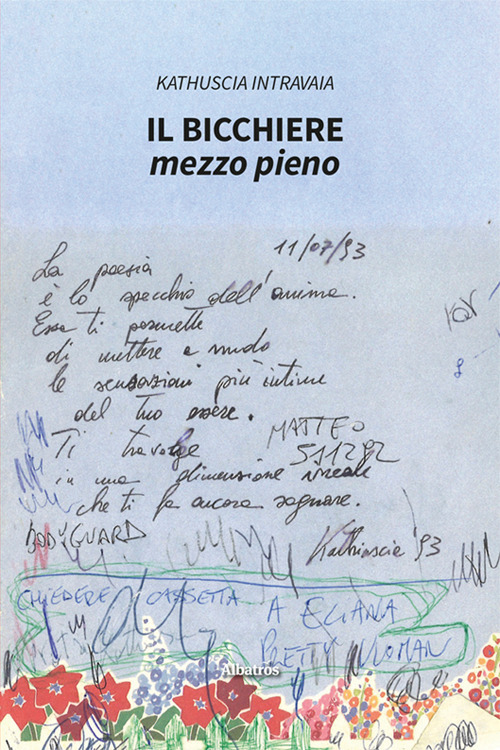 KATHUSCIA INTRAVAIA
IL BICCHIERE
mezzo pieno
11/07/93
La poesia
è lo specchio dell'anima.
Essa ti permette
di mettere a nudo
le sensazioni più intime
del tuo essere.
Ti travolge
MATTEO
511292
in una dimensione irreale
che ti fa ancora sognare.
BODYGUARD
Kathiuscia '93
CHIEDERE CASSETTA A ELIANA
PRETTY WOMAN
Albatros